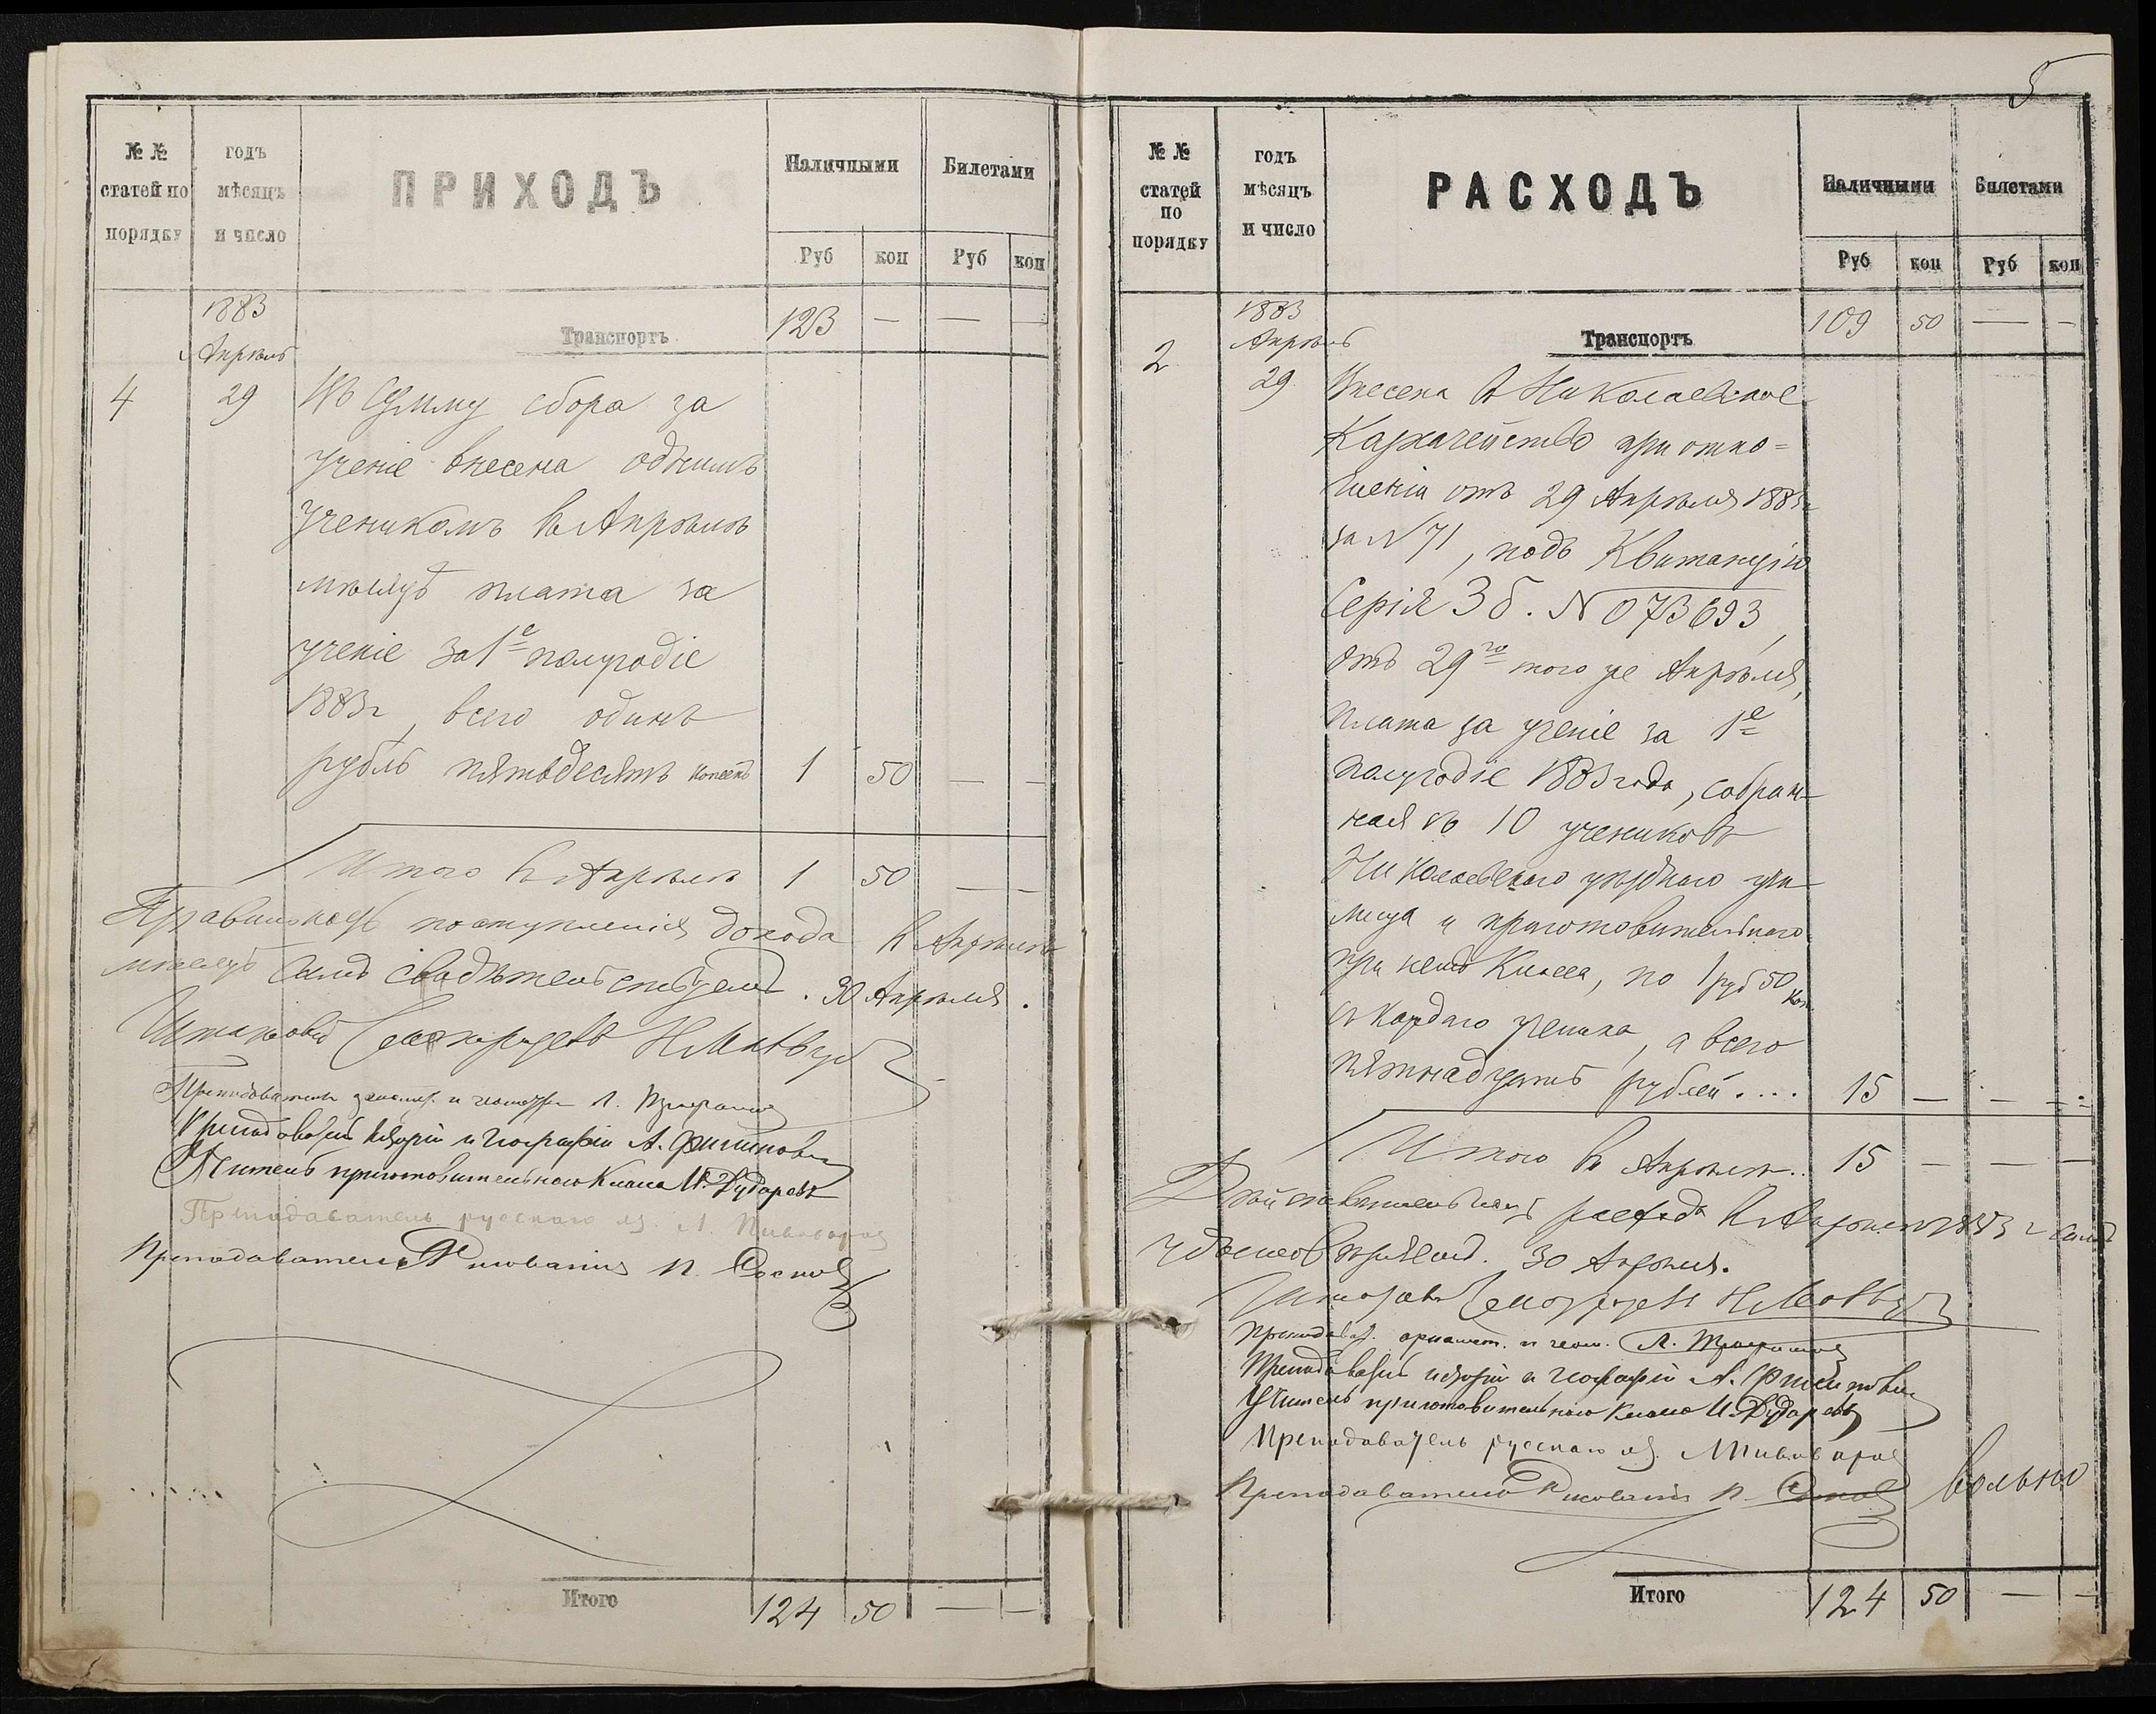 № №
статей по
порядку
годъ
мѣсяцъ
и число
ПРИХОДЪ
Наличными
Билетами
Руб
коп
Руб
коп
1883
Апрѣль
Транспортъ
123 — — —
4 29 Въ сумму сбора за
ученіе внесена однимъ
ученикомъ въ Апрѣлѣ
мѣсяцѣ плата за
ученіе за 1е полугодіе
1883 г, всего одинъ
рубль пятьдесятъ копѣекъ 1 50 — —
Итого въ Апрѣлѣ 1 50 — —
Правильность поступленія дохода въ Апрѣлѣ
мѣсяцѣ симъ свидѣтельствуемъ. 30 Апрѣля.
Штатный Смотритель Н
Преподаватель и геометр Л.
Преподаватель исторіи и географіи А. Филипович
Учитель приготовительнаго класса И. Дударевъ
Преподаватель русскаго яз. Л. Пивоваровъ
Преподаватель Рисованія П.
Итого 124 50 — —
5
№ №
статей
по
порядку
годъ
мѣсяцъ
и число
РАСХОДЪ
Наличными
Билетами
Руб
коп
Руб
коп
1883
Апрѣль
Транспортъ
109 50 — —
2 29 Внесена въ Николаевское
Казначейство при отно=
шеніи отъ 29 Апрѣля 1883 г
за N 71, подъ Квитанцію
Серія Зб. N 073693,
отъ 29го того же Апрѣля,
плата за ученіе за 1е
полугодіе 1883 года, собран-
ная съ 10 учениковъ
Николаевскаго уѣзднаго учи-
лища и приготовительнаго
при немъ Класса, по 1 руб 50 коп
съ каждаго ученика, а всего
пятнадцать рублей.... 15 — — —
Итого въ Апрѣлѣ.. 15 — — —
Дѣйствительность расхода въ Апрѣлѣ 1883 г симъ
удостовѣряемъ. 30 Апрѣля.
Штатный Смотритель Н
Преподават. ариѳмет. и геом. Л.
Преподаватель исторіи и географіи А. Филипович
Учитель приготовительнаго класса И. Дударевъ
Преподаватель русскаго яз. Л Пивоваровъ
Преподаватель Рисованія П.
Итого 124 50 — —